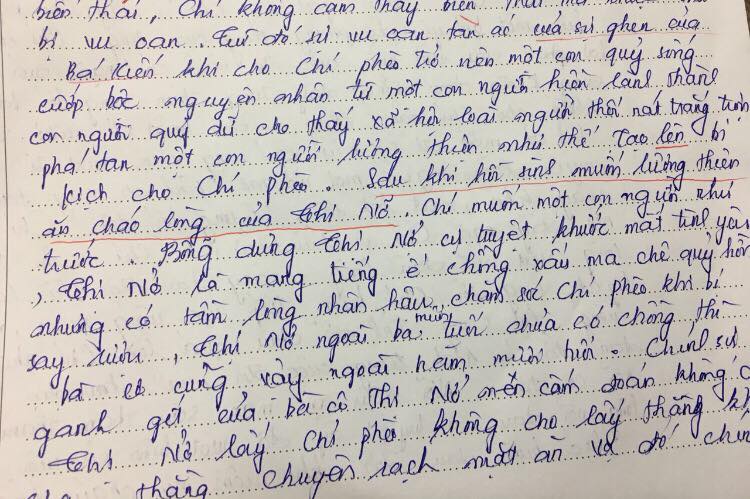 biến thái, Chí không cảm thấy biến
bị vu oan. Từ đó sự vu oan tàn ác của sự ghen của
Bá Kiến khi cho Chí phèo trở nên một con quỷ sống
cướp bóc nguyên nhân từ một con người hiền lành thành
con người quỷ dữ cho thấy xã hội loài người thối nát trắng tinh
phá tan một con người lương thiện như thế. Tạo lên bi
kịch cho Chí phèo. Sau khi hồi sinh muốn lương thiện
ăn cháo lòng của Thị Nở. Chí muốn một con người như
trước. Bỗng dưng Thị Nở cự tuyệt khước mất tình yêu
, Thị Nở là mang tiếng ế chồng xấu ma chê quỷ hờn
nhưng có tấm lòng nhân hậu, chăm sóc Chí phèo khi bị
say rượu, Thị Nở ngoài ba mươi tuổi chưa có chồng thì
bà cô cũng vậy ngoài năm mươi rồi. Chính sự
ganh gét của bà cô Thị Nở nên cấm đoán không
Thị Nở lấy Chí phèo không cho lấy thằng
thằng chuyên rạch mặt ăn vạ đó